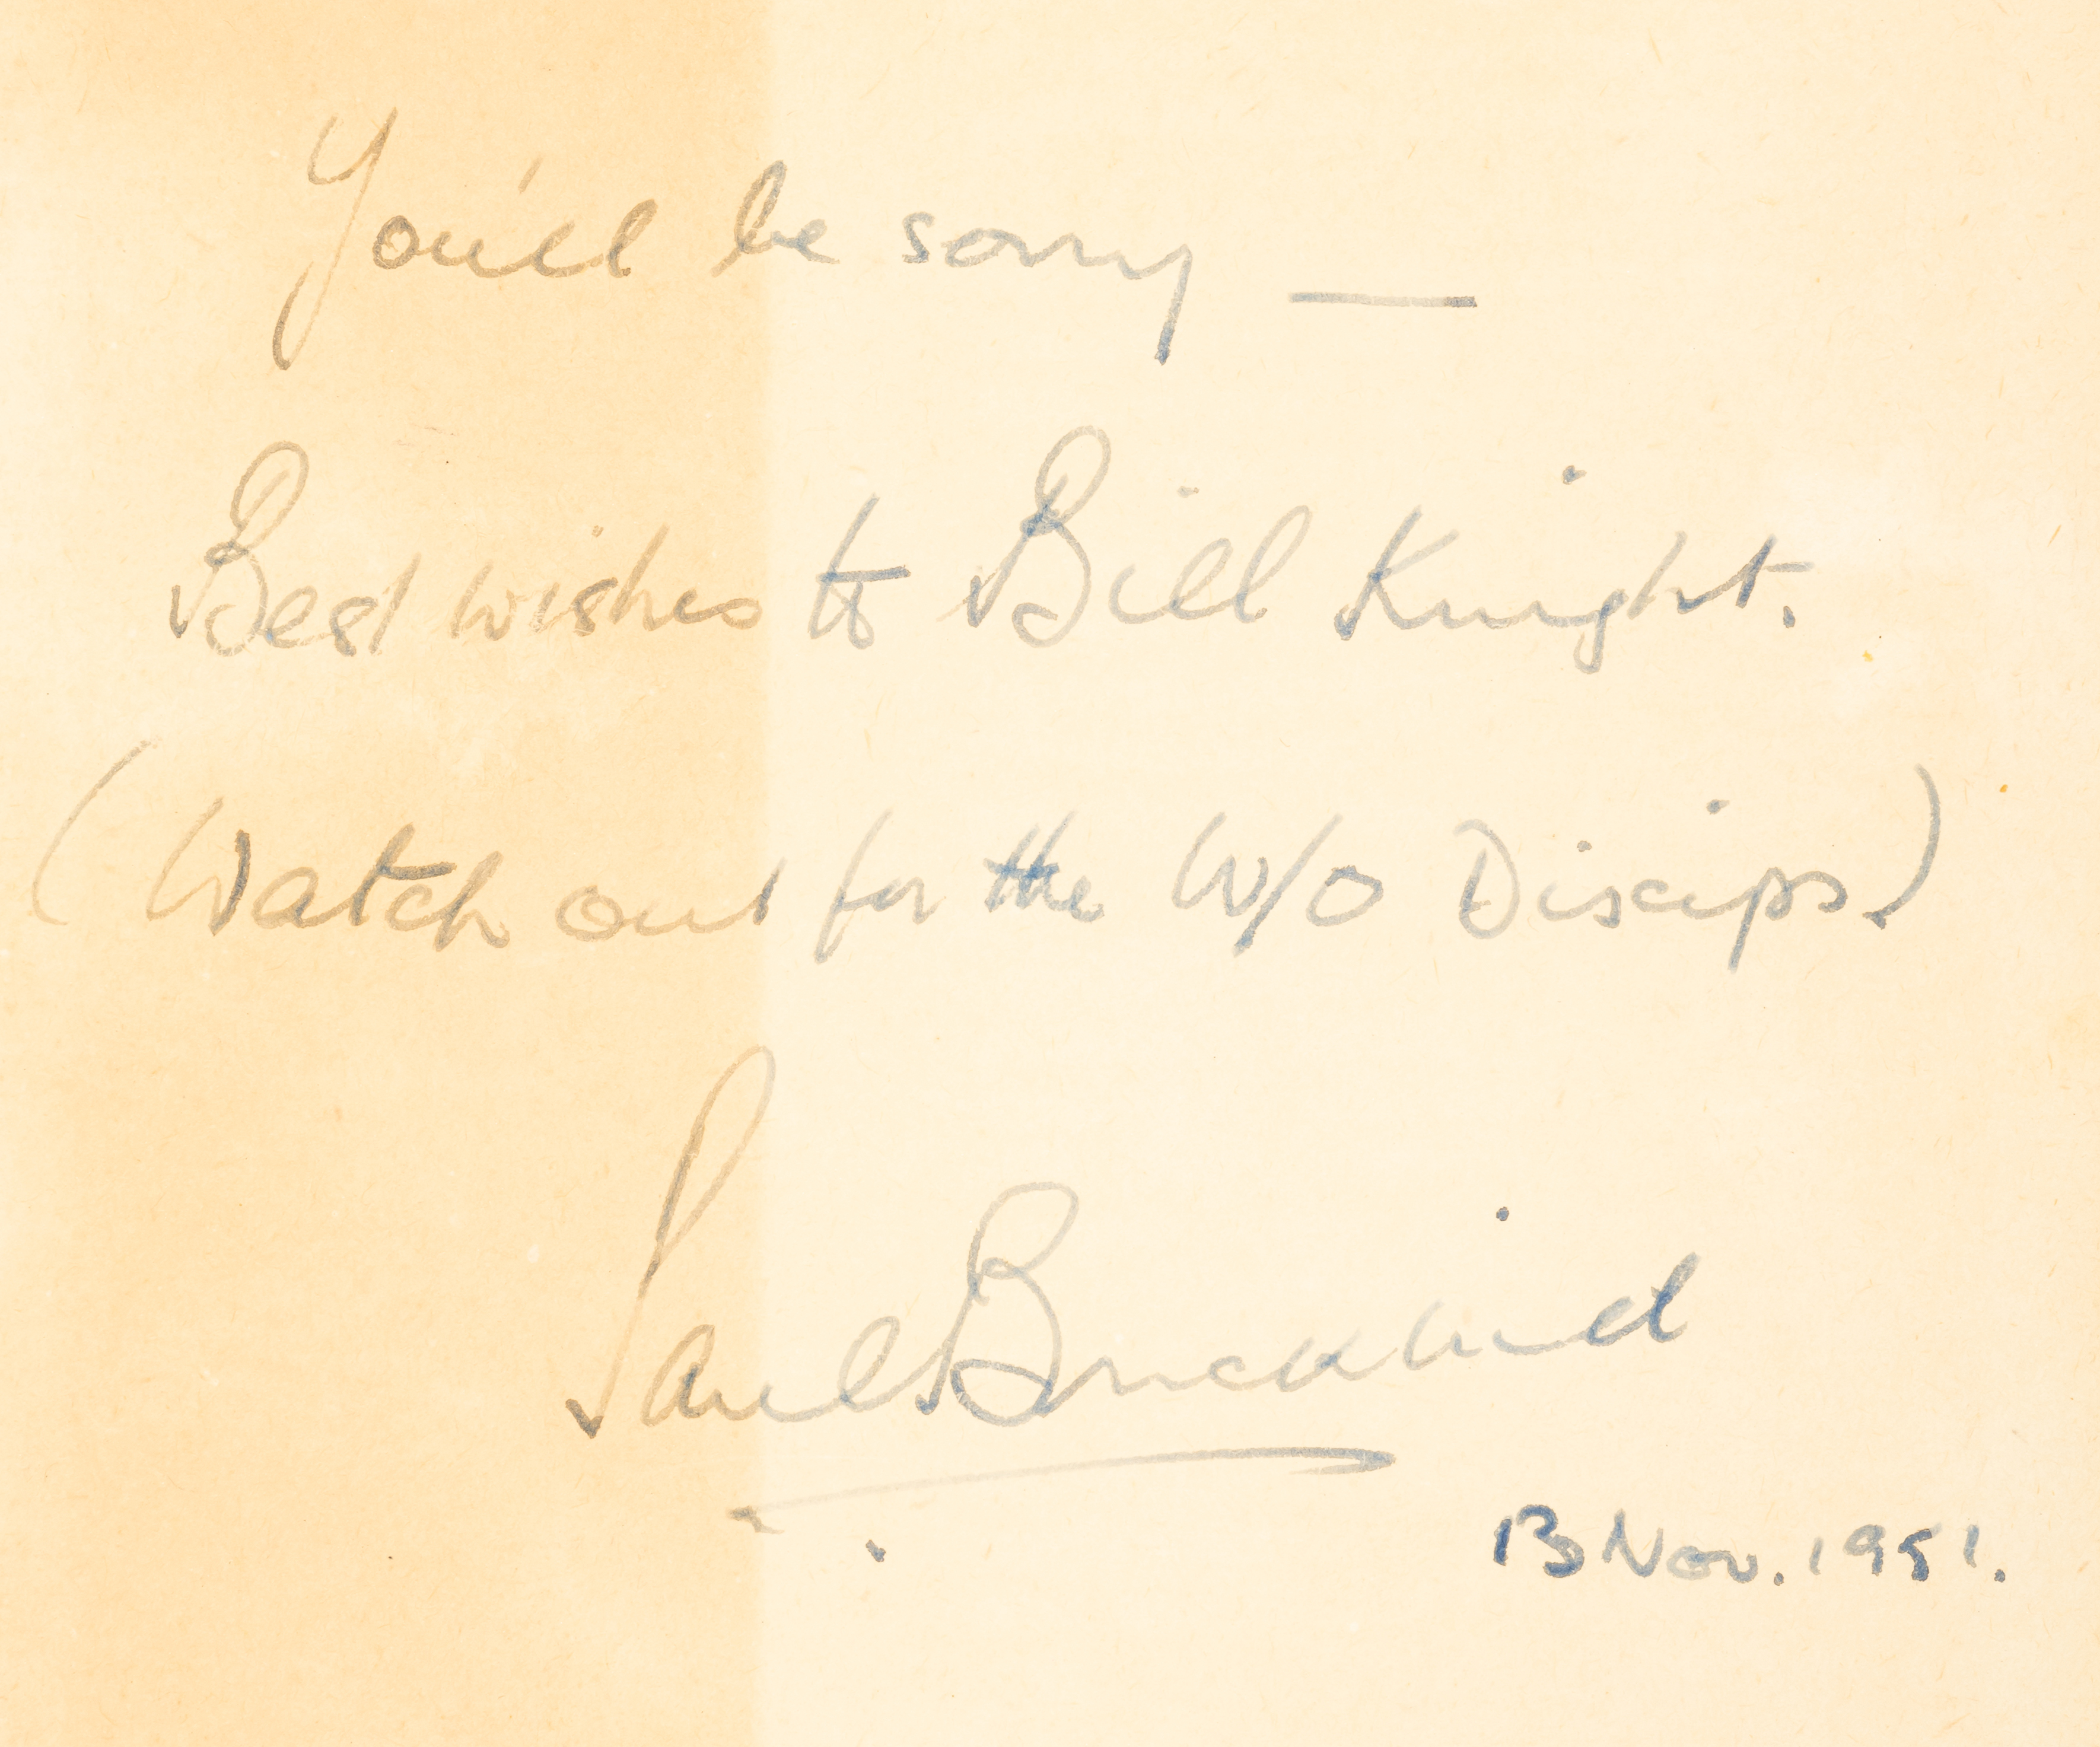 You'll be sorry —
Best wishes to Bill Knight.
(Watch out for the W/O Discips.)
Paul Brickhill
13 Nov. 1951.